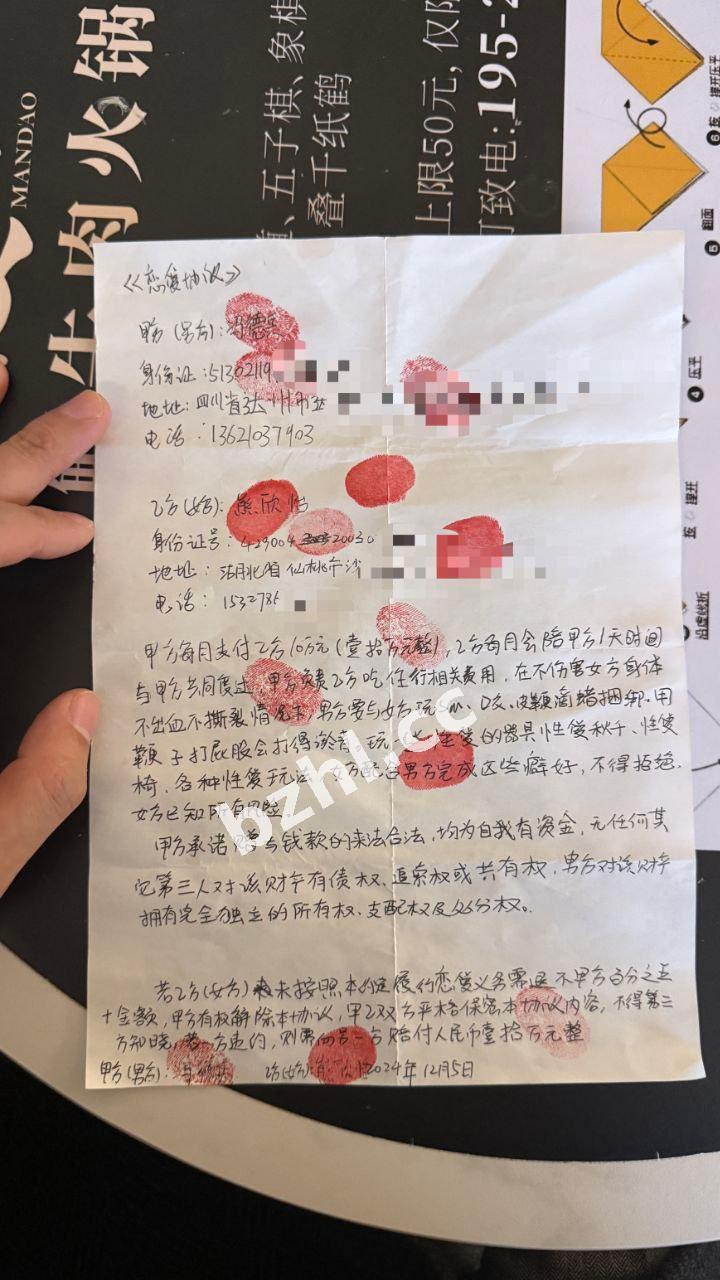 MANDAO
牛肉火锅
五子棋、象棋
叠千纸鹤
上限50元，仅限
致电:195-2
《恋爱协议》
甲方(男方):
身份证:51302119
地址:四川省达州市
电话:13621037903
乙方(女方):熊欣怡
身份证号:429004 20030
地址:湖北省仙桃市沙
电话:1532786
甲方每月支付乙方10万元(壹拾万元整),乙方每月会陪甲方1天时间
与甲方共同度过,甲方负责乙方吃住行相关费用,在不伤害女方身体
不出血不撕裂情况下,男方要与女方玩Sm、口交、皮鞭滴蜡捆绑.用
鞭子打屁股会打得淤青 玩 性爱的器具性爱秋千、性爱
椅、各种性爱玩法,女方配合男方完成这些癖好,不得拒绝.
女方已知所有风险.
甲方承诺赠与钱款的来法合法,均为自我有资金,无任何其
它第三人对该财产有债权、追索权或共有权,男方对该财产
拥有完全独立的所有权、支配权及处分权。
若乙方(女方)未按照本约定履行恋爱义务需退还甲方百分之五
十金额,甲方有权解除本协议,甲乙双方严格保密本协议内容,不得第三
方知晓,若一方违约,则需向另一方赔付人民币壹拾万元整
甲方(男方): 乙方(女方): 2024年12月5日
bzhl.cc
⑥ 撑开压平
⑤ 翻面
④ 压平
撑开
沿虚线折